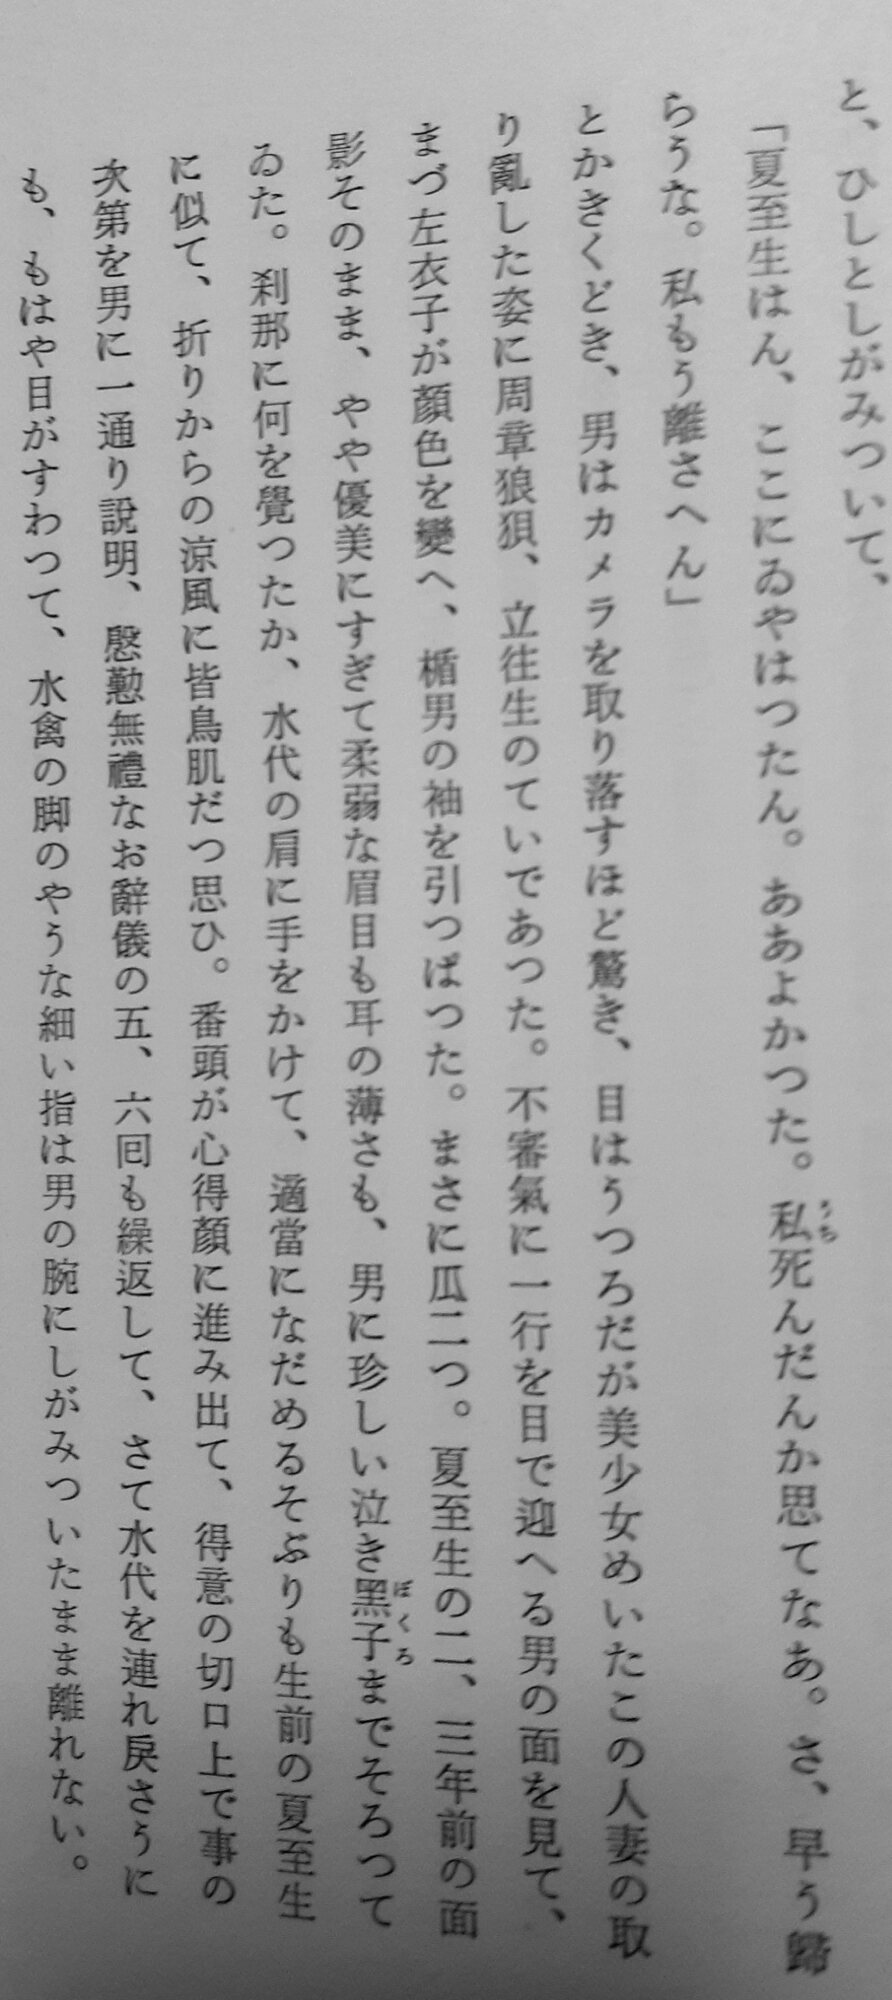 と、ひしとしがみついて、
「夏至生はん、ここにゐやはつたん。ああよかつた。私死んだんか思てなあ。さ、早う歸
らうな。私もう離さへん」
とかきくどき、男はカメラを取り落すほど驚き、目はうつろだが美少女めいたこの人妻の取
り亂した姿に周章狼狽、立往生のていであつた。不審氣に一行を目で迎へる男の面を見て、
まづ左衣子が顔色を變へ、楯男の袖を引つぱつた。まさに瓜二つ。夏至生の二、三年前の面
影そのまま、やや優美にすぎて柔弱な眉目も耳の薄さも、男に珍しい泣き黑子までそろつて
ゐた。刹那に何を覺つたか、水代の肩に手をかけて、適當になだめるそぶりも生前の夏至生
に似て、折りからの涼風に皆鳥肌だつ思ひ。番頭が心得顔に進み出て、得意の切口上で事の
次第を男に一通り說明、慇懃無禮なお辭儀の五、六囘も繰返して、さて水代を連れ戾さうに
も、もはや目がすわつて、水禽の脚のやうな細い指は男の腕にしがみついたまま離れない。